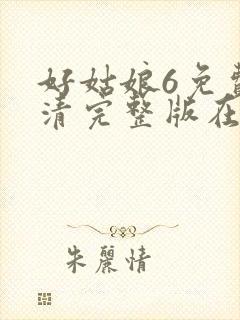 好姑娘6免费
清完整版在
朱丽情